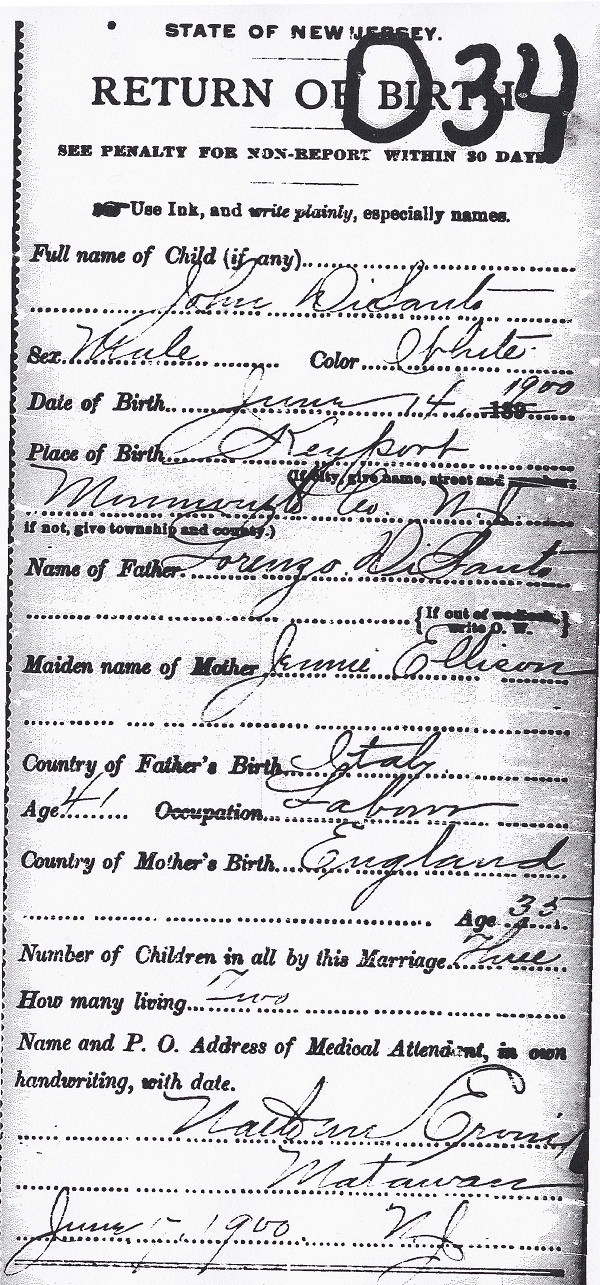 STATE OF NEW JERSEY.
034
RETURN OF BIRTH
SEE PENALTY FOR NON-REPORT WITHIN 30 DAYS
Use Ink, and write plainly, especially names.
Full name of Child (if any)
John DiSanto
Sex Male Color White
Date of Birth June 14, 189 1900
Place of Birth Keyport
(If city, give name, street and number;
Monmouth Co. N.J.
if not, give township and county.)
Name of Father Lorenzo DiSanto
{If out of wedlock, write O. W.}
Maiden name of Mother Jennie Ellison
Country of Father's Birth Italy
Age 41 Occupation Labour
Country of Mother's Birth England
Age 35
Number of Children in all by this Marriage Three
How many living Two
Name and P. O. Address of Medical Attendent, in own
handwriting, with date.
Matawan
June 1900 N.J.